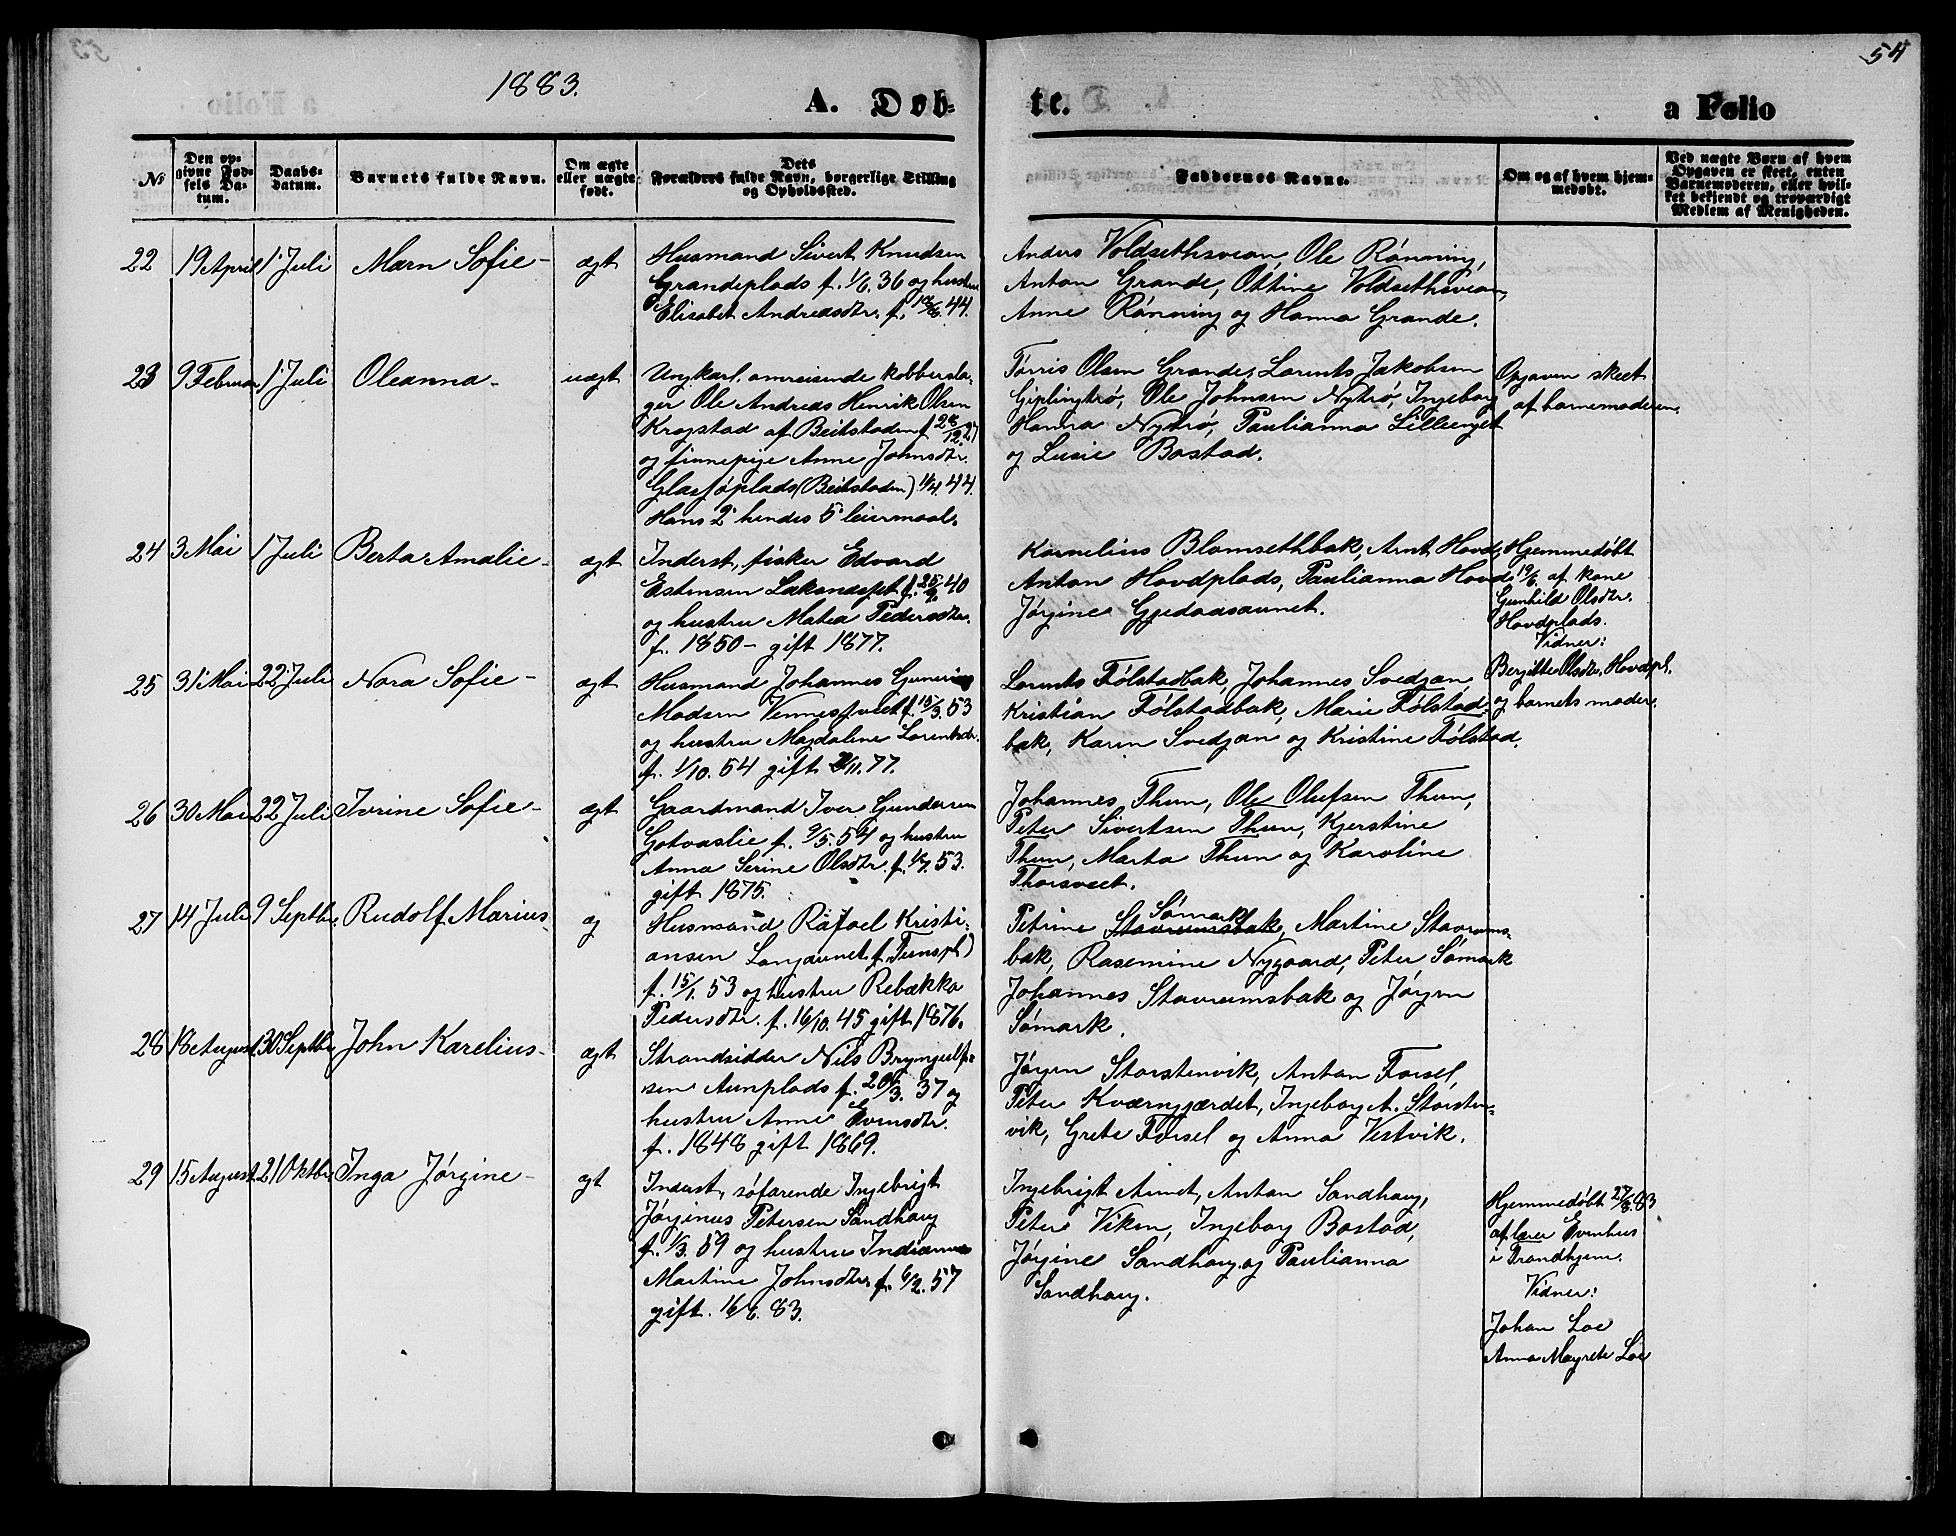 54
1883.
A. Døb-
te.
a Folio
No
Den op-
givne Fød-
sels Da-
tum.
Daabs-
datum.
Barnets fulde Navn.
Om ægte
eller uægte
født.
Dets
Forældres fulde Navn, borgerlige Stilling
og Opholdssted.
Faddernes Navne.
Om og af hvem hjem-
medøbt.
Ved uægte Børn af hvem
Opgaven er skeet, enten
Barnemoderen, eller hvil-
ket bekjendt og troværdigt
Medlem af Menigheden.
22 19 April 1 Juli Maren Sofie- ægt
Husmand Sivert Knudsen
Grandeplads f. 1/6. 36 og hustru
Elisabet Andreasdtr. f. 44.
Anders Voldsethsveian, Ole Rønning,
Anton Grande, Ottine Voldsethsveian,
Anne Rønning og Hanna Grande.
23 9 Februar 1 Juli Oleanna- uægt
Ungkarl, omreisende kobbersla-
ger Ole Andreas Henrik Olsen
Krogstad af Beitstaden f. 28/12. 27
og finnepige Anne Johnsdtr.
Glasføplads (Beitstaden) 1/4. 44.
Hans 2 hendes 5 leiermaal.
Tørris Olsen Grande, Lorents Jakobsen
Giplingtrø, Ole Johnsen Nytrø, Ingeborg
Hanna Nytrø, Paulianna Lillienget
og Lusie Bostad.
Opgaven skeet
af barnemoderen.
24 3 Mai 1 Juli Berta Amalie- ægt
Inderst, fisker Edvard
Estensen Lakonesset f. 25/9. 40
og hustru Matea Pedersdtr.
f. 1850- gift 1877.
Kornelius Blomsethbak, Arnt Hovd,
Anton Hovdplads, Paulianna Hovd
Jørgine Gjedaasaunet.
Hjemmedøbt
19/6. af kone
Gunhild Olsdtr.
Hovdplads.
Vidner:
Bergitte Olsdtr, Hovdpl.
og barnets moder.
25 31 Mai 22 Juli Nora Sofie- ægt
Husmand Johannes Gunerius
Madsen f. 15/3. 53
og hustru Magdalene Lorentsdtr.
f. 1/10. 54 gift 2/11. 77.
Lorents Følstadbak, Johannes Svedjan,
Kristian Følstadbak, Marie Følstad-
bak, Karen Svedjan og Kristine Følstad.
26 30 Mai 22 Juli Ivrine Sofie- ægt
Gaardmand Iver Gundersen
Gotvaslie f. 9/5. 54 og hustru
Anna Serine Olsdtr. f. 1/7. 53.
gift 1875.
Johannes Thun, Ole Olufsen Thun,
Peter Sivertsen Thun, Kjerstine
Thun, Marta Thun og Karoline
Thorsveet.
27 14 Juli 9 Septbr. Rudolf Marius- æg
Husmand Rafael Kristi-
ansen Langaunet f. Tunspl)
f. 15/1. 53 og hustru Rebækka
Pedersdtr. f. 16/10. 45 gift 1876.
Sømark
Petrine Stavrumsbak, Martine Stavrums-
bak, Rasemine Nygaard, Peter Sømark
Johannes Stavrumsbak og Jørgen
Sømark.
28 18 August 30 Septbr John Karelius- ægt
Strandsidder Nils Brynjulf-
sen Aunplads f. 20/3. 37 og
hustru Anne Evensdtr.
f. 1848 gift 1869.
Jørgen Storstenvik, Anton Forsel,
Peter Kværngjærdet, Ingeborg A. Storsten-
vik, Grete Forsel og Anna Vestvik.
29 15 August 21 Oktbr Inga Jørgine- ægt
Inderst, søfarende Ingebrigt
Jørginus Petersen Sandhaug
f. 1/3. 59 og hustru Indianna
Martine Johnsdtr. f. 6/2. 57
gift. 16/6. 83.
Ingebrigt Aunet, Anton Sandhaug,
Peter Viken, Ingeborg Bostad,
Jørgine Sandhaug og Paulianna
Sandhaug.
Hjemmedøbt 27/8. 83
af lærer Evenhus
i Trondhjem.
Vidner:
Johan Loe
Anna Magrete Loe